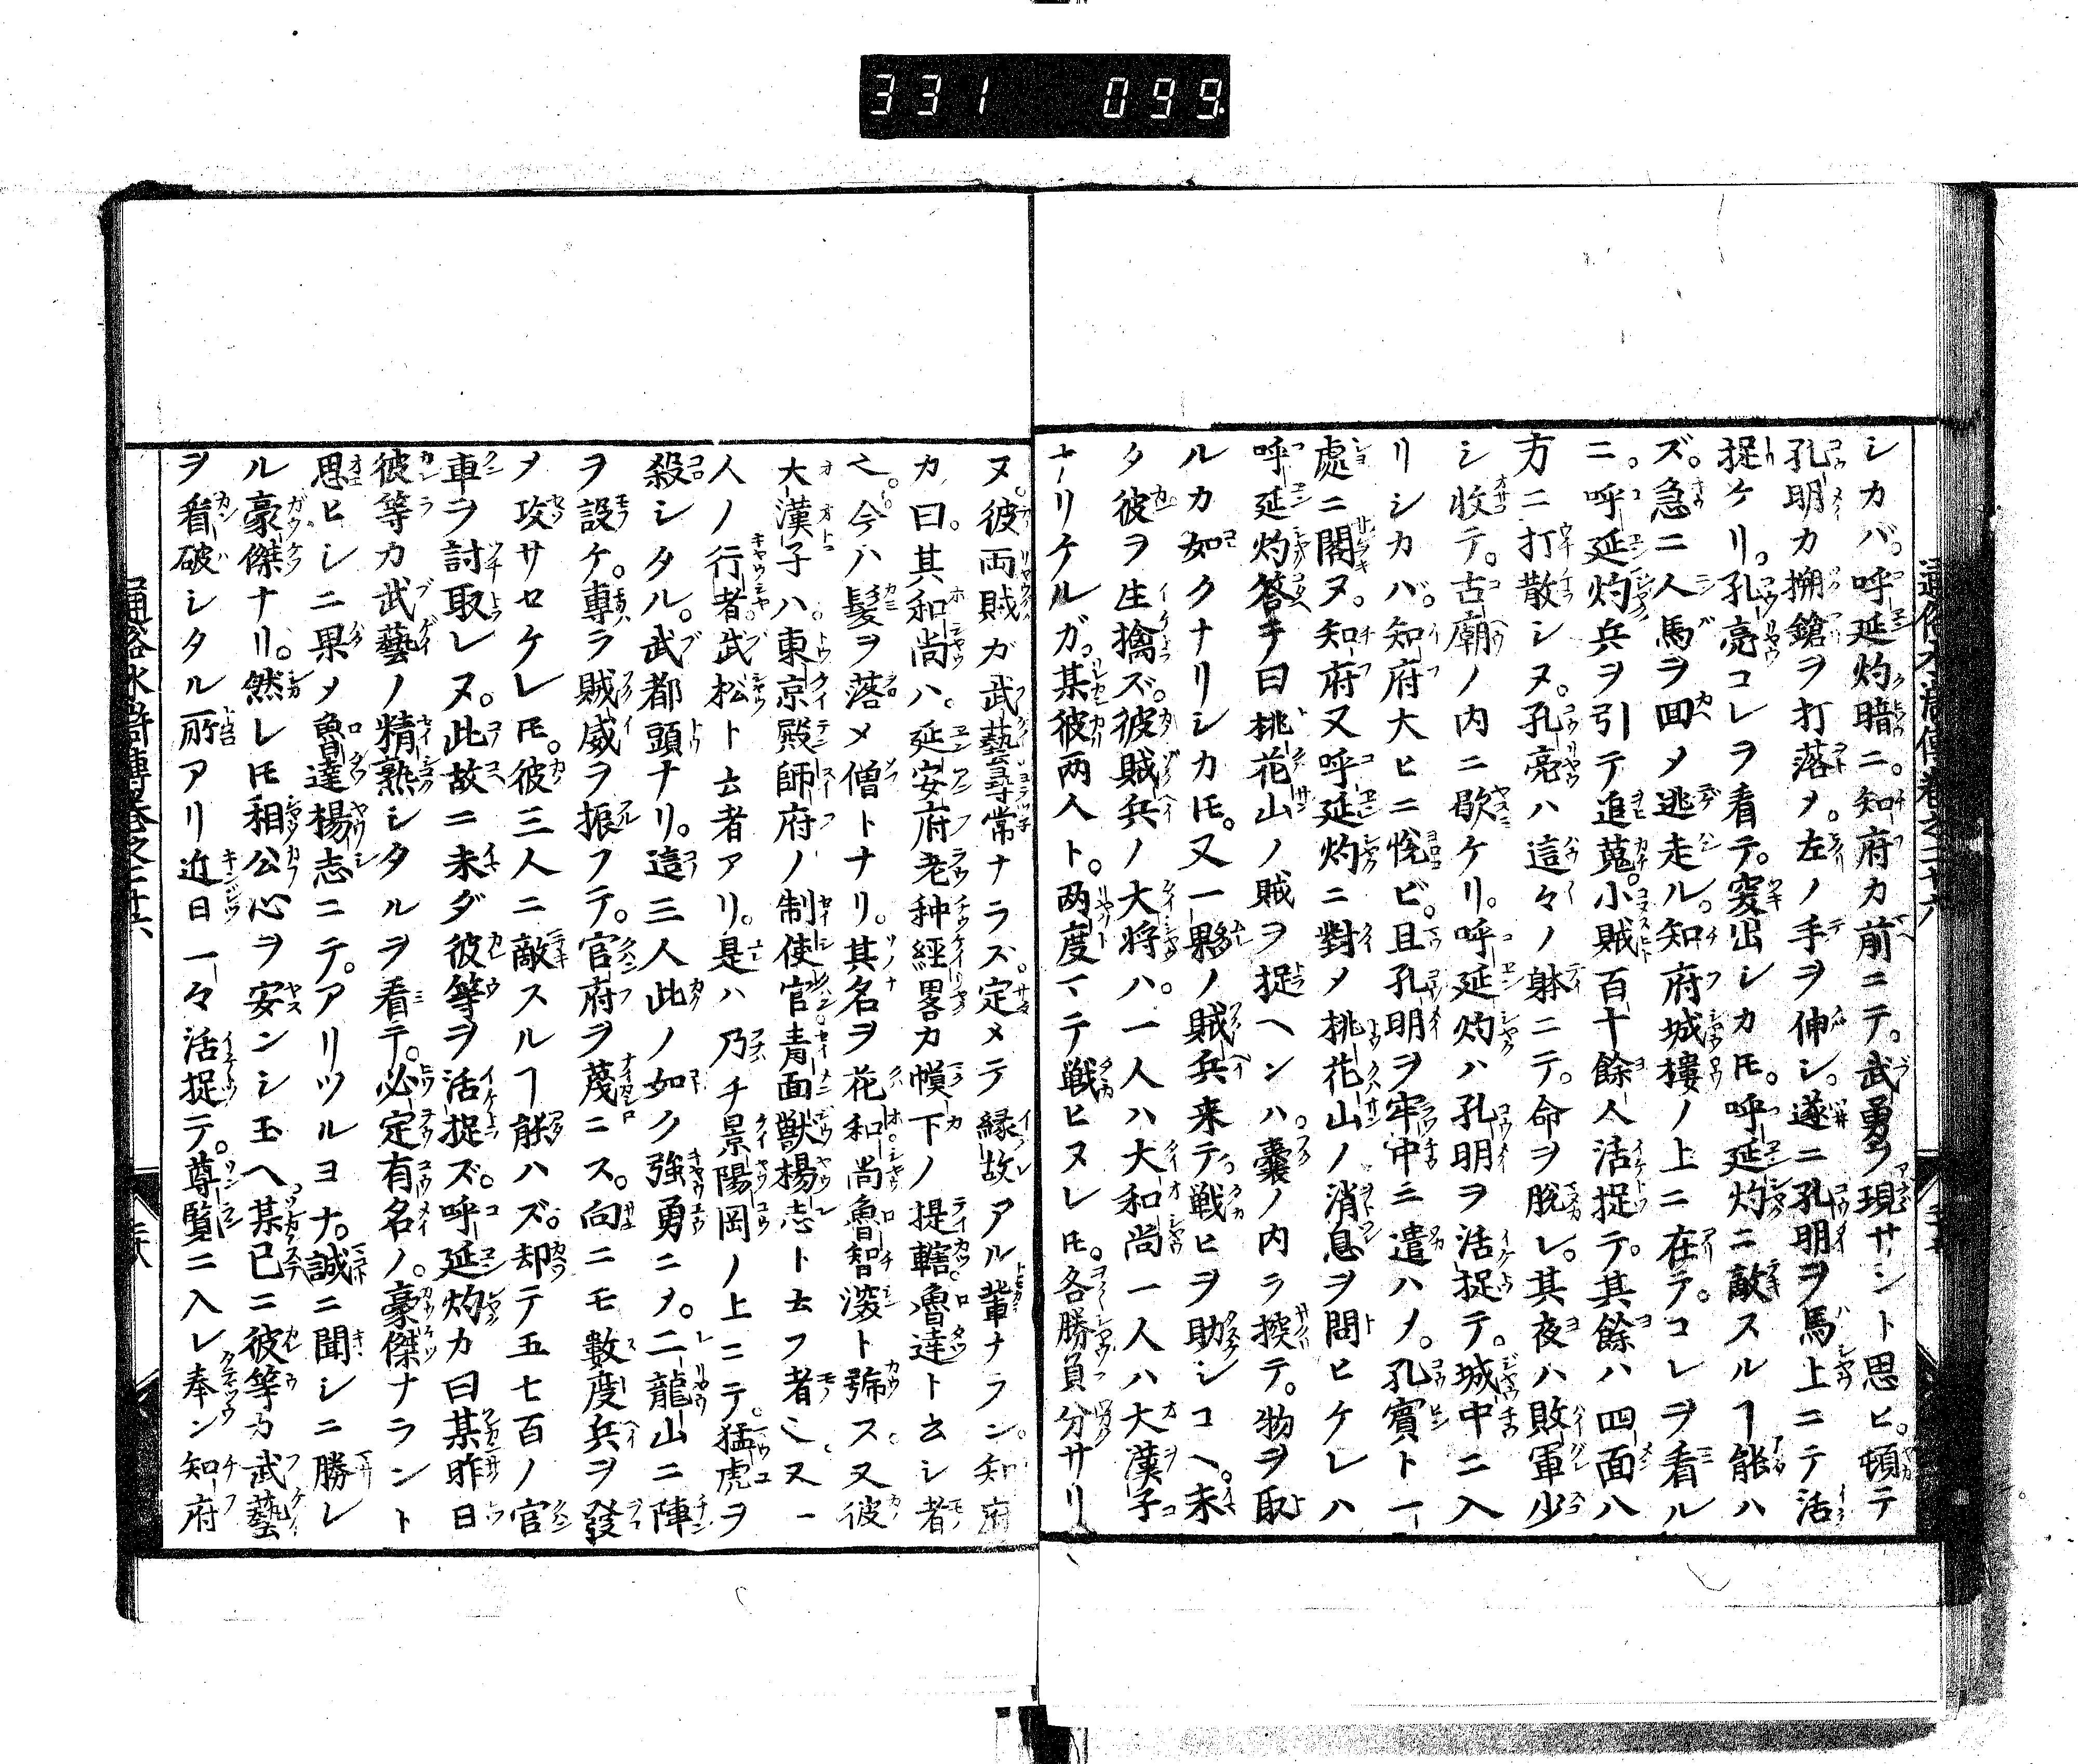 331 099.
シカバ。呼延灼暗ニ。知府カ前ニテ。武勇ヲ現サント思ヒ。頓テ
孔明カ搠鎗ヲ打落メ。左ノ手ヲ伸シ。遂ニ孔明ヲ馬上ニテ活
捉ケリ。孔亮コレヲ看テ。突出シカ𪜈。呼延灼ニ敵スルヿ能ハ
ズ。急ニ人馬ヲ回メ逃走ル。知府城樓ノ上ニ在テ。コレヲ看ル
ニ。呼延灼兵ヲ引テ追蒐。小賊百十餘人活捉テ。其餘ハ四面八
方ニ打散シヌ。孔亮ハ這々ノ躰ニテ。命ヲ脱レ。其夜ハ敗軍少
シ收テ。古廟ノ内ニ歇ケリ。呼延灼ハ孔明ヲ活捉テ。城中ニ入
リシカバ。知府大ヒニ悦ビ。且孔明ヲ牢中ニ遣ハメ。孔賓ト一
處ニ閣ヌ。知府又呼延灼ニ對メ桃花山ノ消息ヲ問ヒケレハ
呼延灼答テ曰桃花山ノ賊ヲ捉ヘンハ。嚢ノ内ヲ探テ。物ヲ取
ルカ如クナリシカ𪜈。又一夥ノ賊兵来テ戦ヒヲ助シコヘ。未
タ彼ヲ生擒ズ。彼賊兵ノ大将ハ。一人ハ大和尚一人ハ大漢子
ナリケルガ。某彼両人ト。両度マテ戦ヒヌレ𪜈。各勝負分サリ
通俗水滸傳卷之二十六
ヌ。彼両賊ガ武藝尋常ナラズ。定メテ縁故アル輩ナラン。知府
カ曰。其和尚ハ。延安府老种經畧カ幙下ノ提轄。魯達ト云シ者
ニ。今ハ髪ヲ落メ僧トナリ。其名ヲ花和尚魯智深ト號ス。又彼
大漢子ハ。東京殿師府ノ制使官青面獣楊志ト云フ者ニ。又一
人ノ行者武松ト云者アリ。是ハ乃チ景陽岡ノ上ニテ。猛虎ヲ
殺シタル。武都頭ナリ。這三人此ノ如ク強勇ニメ。二龍山ニ陣
ヲ設ケ。專ラ賊威ヲ振フテ。官府ヲ蔑ニス。向ニモ數度兵ヲ發
メ攻サセケレ𪜈。彼三人ニ敵スルヿ能ハズ。却テ五七百ノ官
軍ヲ討取レヌ。此故ニ未ダ彼等ヲ活捉ズ。呼延灼カ曰某昨日
彼等カ武藝ノ精熟シタルヲ看テ。必定有名ノ。豪傑ナラント
思ヒシニ果メ魯達楊志ニテ。アリツルヨナ。誠ニ聞シニ勝レ
ル豪傑ナリ。然レ𪜈相公心ヲ安ンシ玉ヘ某已ニ彼等カ武藝
ヲ看破シタル所アリ近日一々活捉テ。尊覧ニ入レ奉ン知府
通俗水滸傳卷之二十六